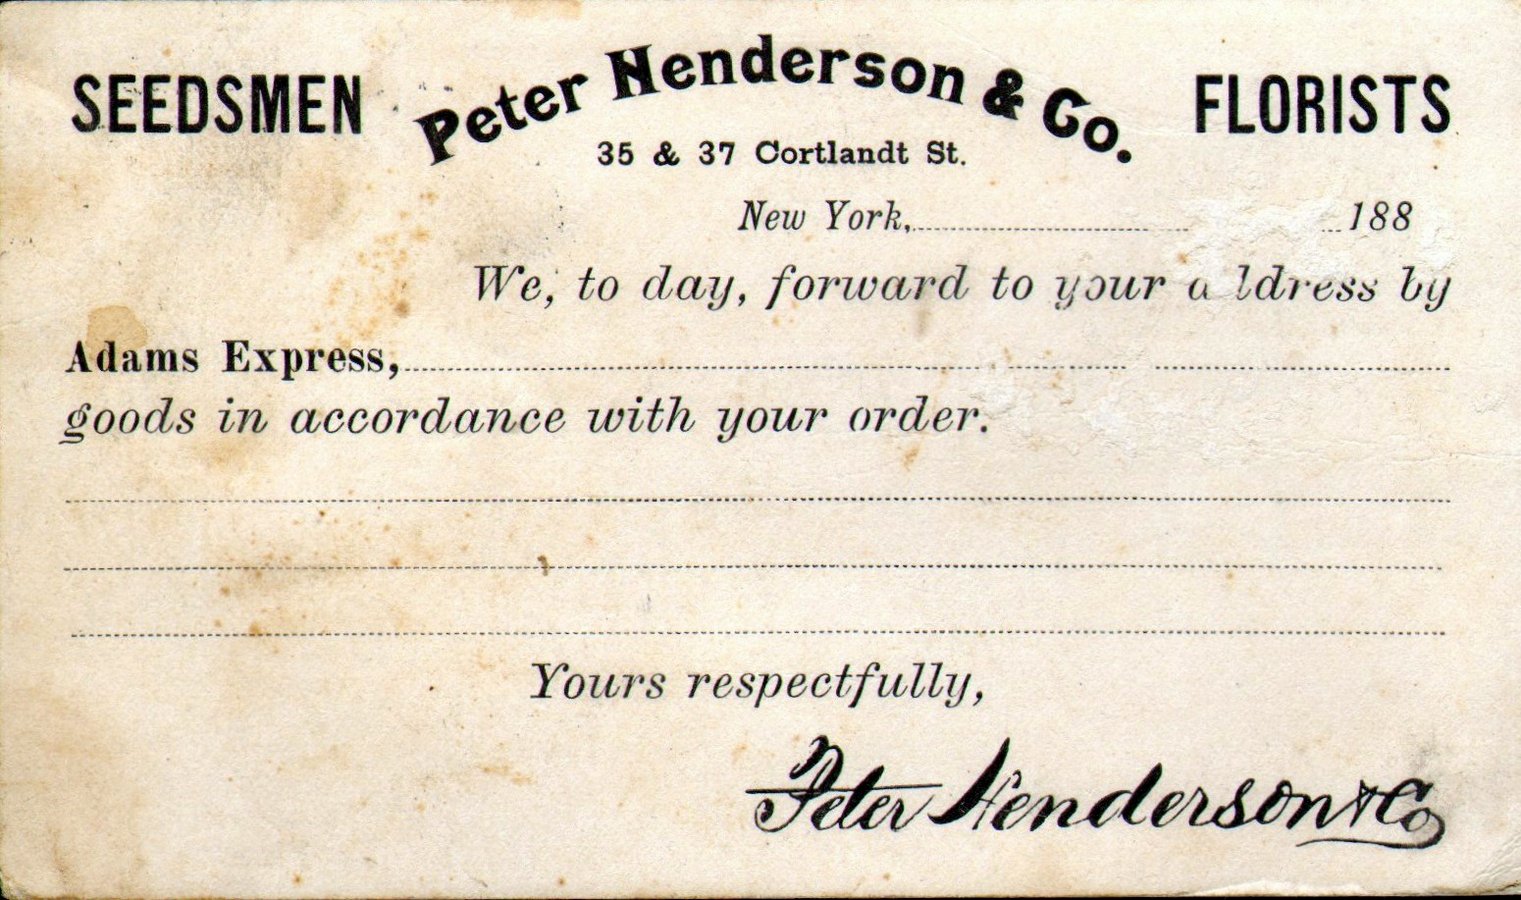 SEEDSMEN Peter Henderson & Co. FLORISTS
35 & 37 Cortlandt St.
New York, 188
We, to day, forward to your address by
Adams Express,
goods in accordance with your order.
Yours respectfully,
Peter Henderson & Co